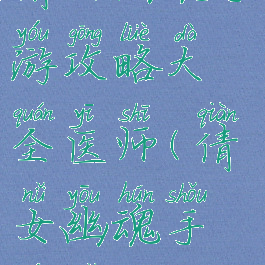 yóu gōng lüè dà
游攻略大
quán yī shī qiàn
全医师(倩
nǚ yōu hún shǒu
女幽魂手